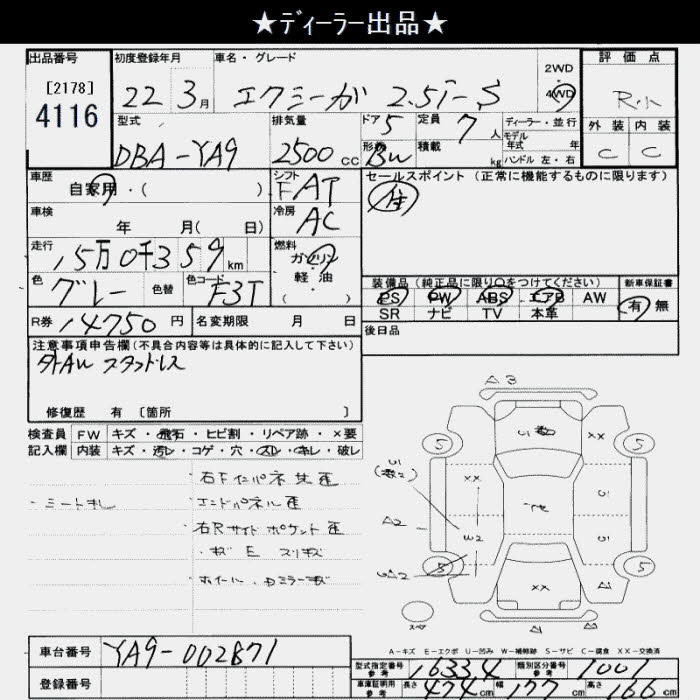 ★ディーラー出品★
出品番号 初度登録年月 車名・グレード 評価点
[2178] 22年 3月 エクシーガ 2.5i-S 2WD 4WD R.h
4116 型式 排気量 ドア 5 定員 7人 ディーラー・並行 外装 内装
DBA-YA9 2500cc 形状 BW 積載 kg モデル年式 年 ハンドル 左・右 C C
車歴 自家用・( ) シフト FAT セールスポイント (正常に機能するものに限ります)
車検 年 月( 日) 冷房 AC
走行 15万0千359km 燃料 ガソリン・軽油 ( )
色 グレー 色替 色コード F3T 装備品(純正品に限り〇をつけてください) 新車保証書
PS PW ABS エアB AW 有 無
R券 14750円 名変期限 月 日 SR ナビ TV 本革
注意事項申告欄(不具合内容等は具体的に記入して下さい) 後日品
外AW スタッドレス
修復歴 有 〔箇所 〕
検査員 FW キズ・飛石・ヒビ割・リペア跡・×要
記入欄 内装 キズ・汚レ・コゲ・穴・スレ・キレ・破レ
A3
5 XX 5
右F インパネ
・シートスレ エンドパネル 歪
右Rサイド ポケット 歪
A2
XX
ホイール・ドアミラーキズ
スペア
A-キズ E-エクボ U-凹み W-補修跡 S-サビ C-腐食 XX-交換済
車台番号 YA9-002871
型式指定番号 参考 16334 類別区分番号 参考 1001
登録番号 車庫証明用 参考 長さ 474cm 幅 177cm 高さ 166cm